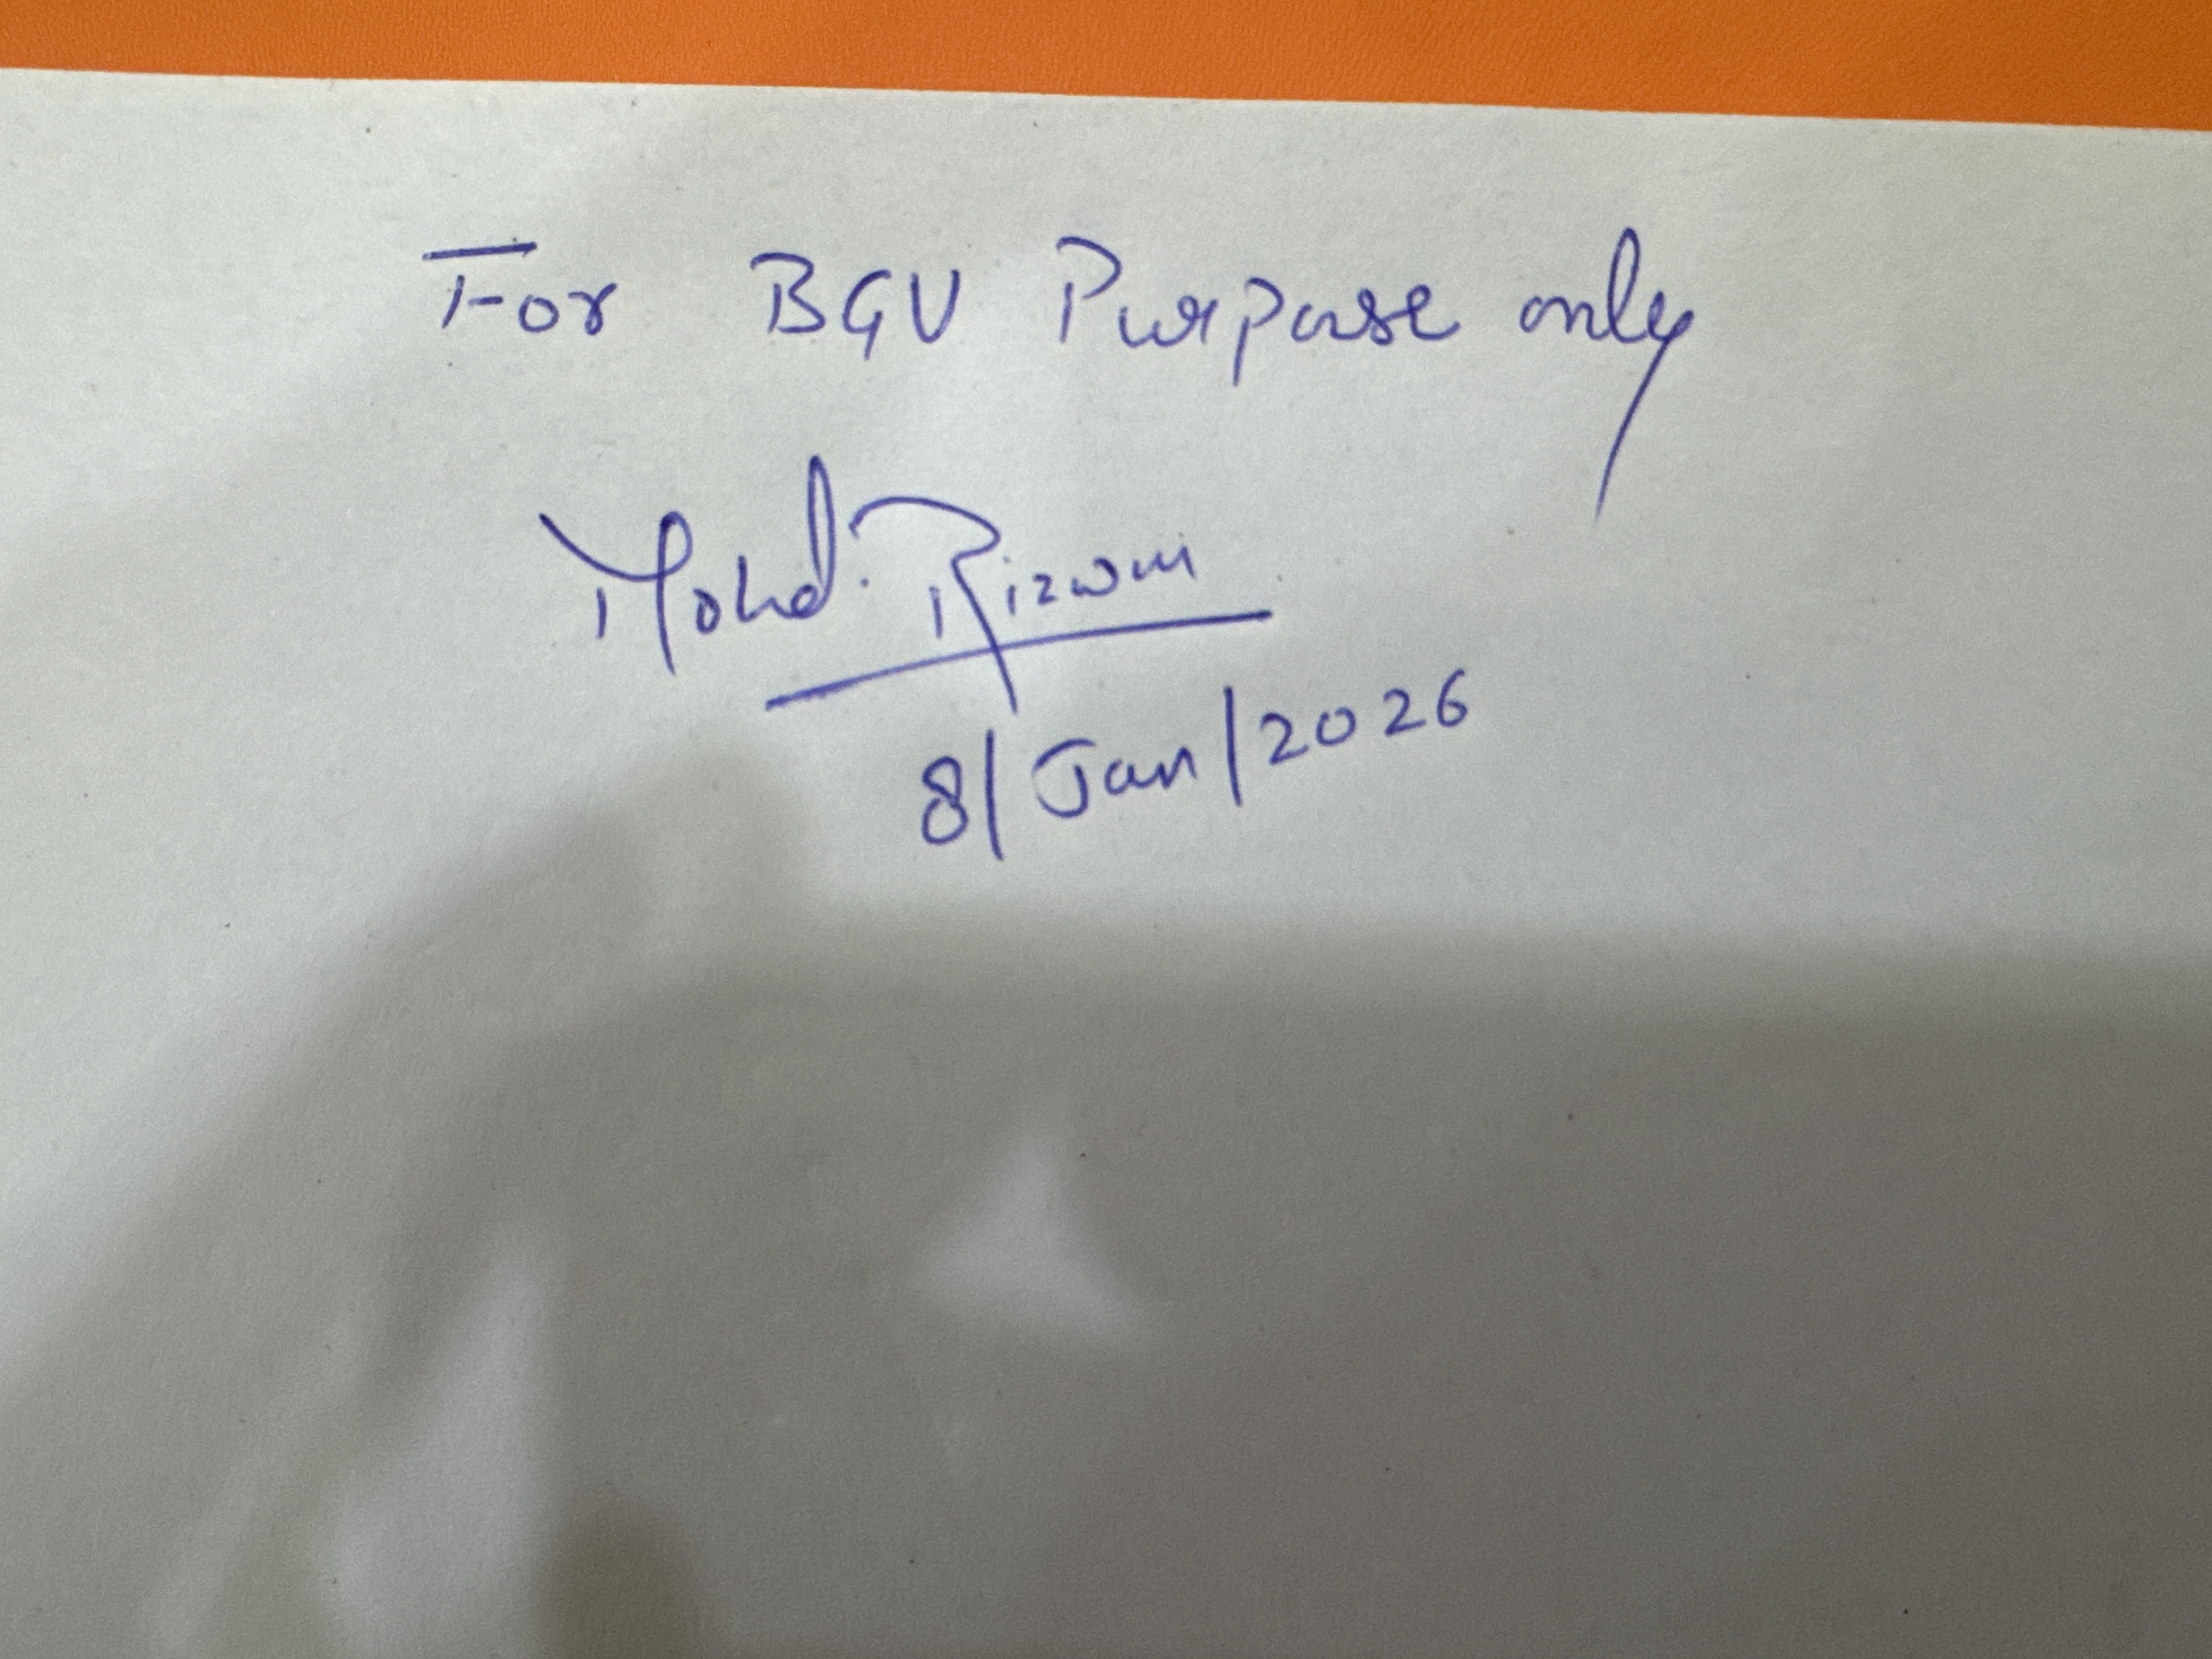 For BGV Purpose only
Mohd. Rizwan
8/Jan/2026